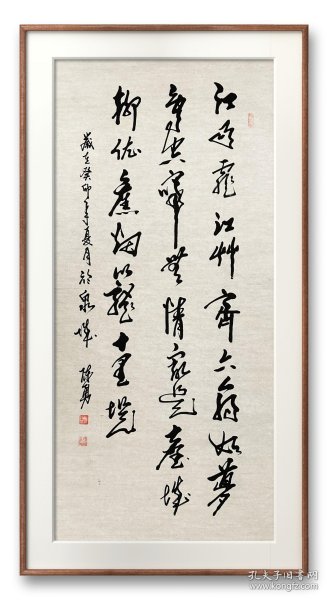 江雨霏霏江艸齊六朝如夢
鳥空啼無情最是臺城
柳依舊烟籠十里堤
歲在癸卯年夏月於泉城 陳勇
孔夫子旧书网
www.kongfz.com